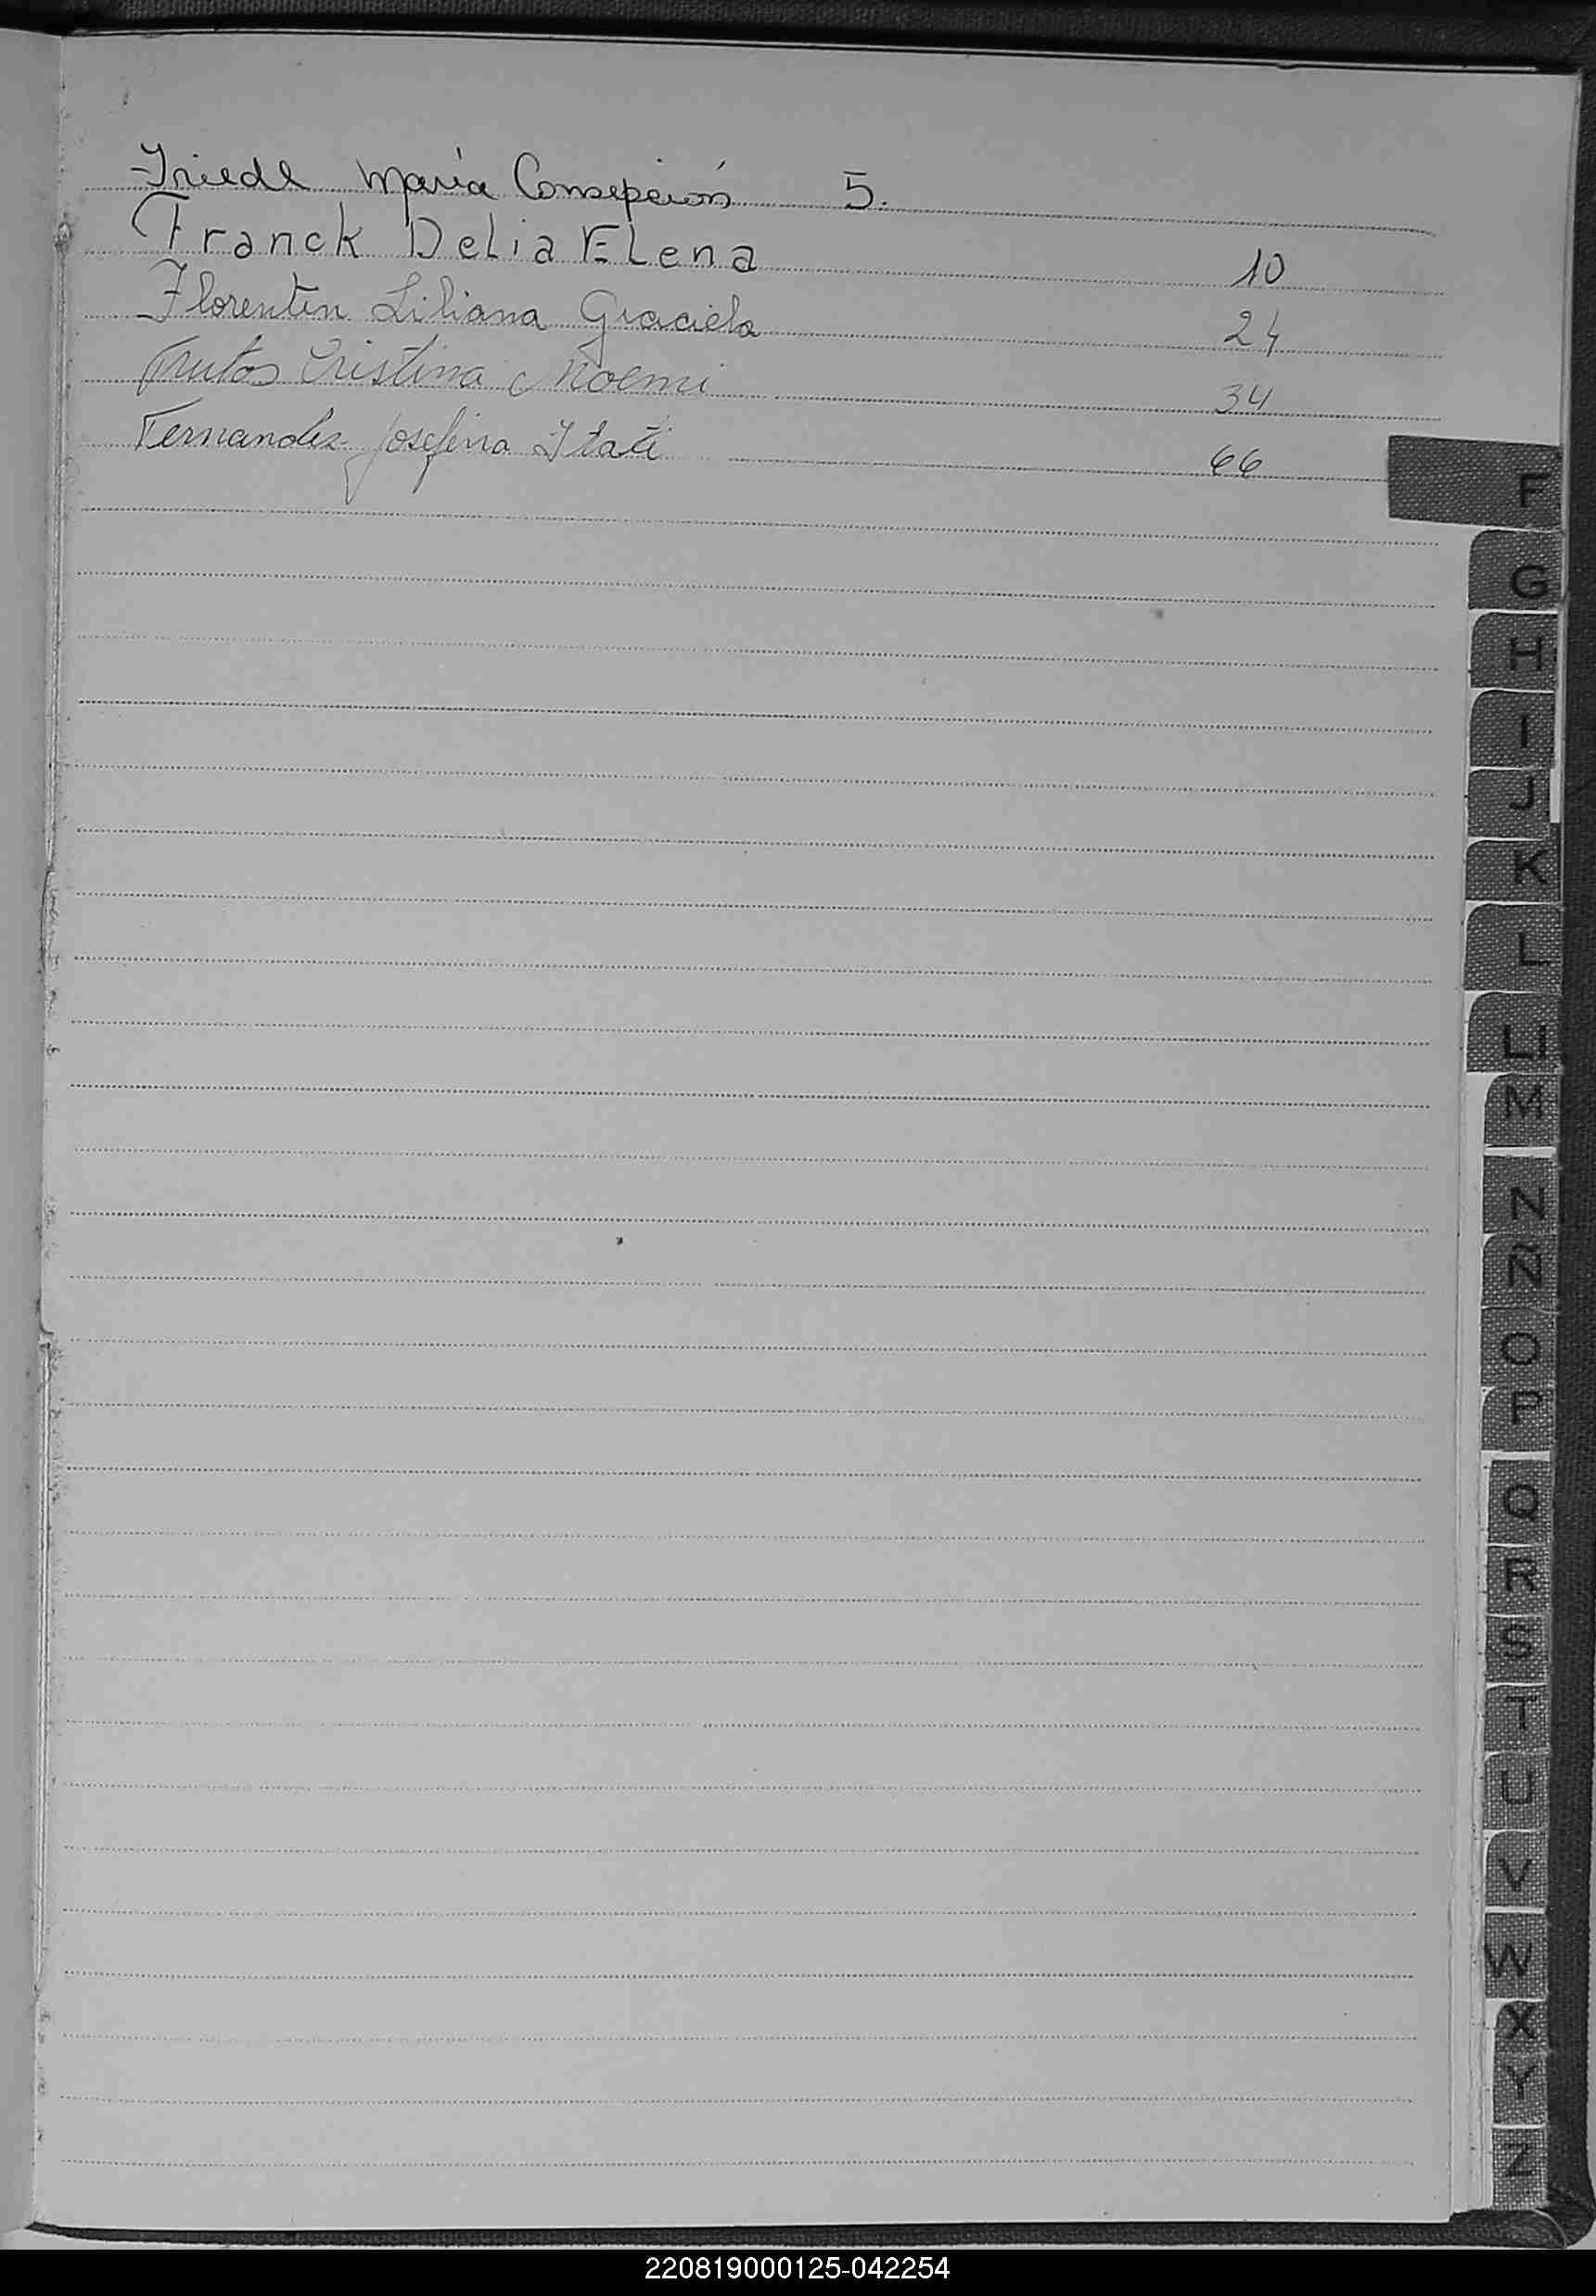 Friedl María Consepción 5.
Franck Delia Elena 10
Florentin Liliana Graciela 24
Frutos Cristina Noemi 34
Fernandez Josefina Itatí 66
F
G
H
I
J
K
L
LL
M
N
Ñ
O
P
Q
R
S
T
U
V
W
X
Y
Z
220819000125-042254